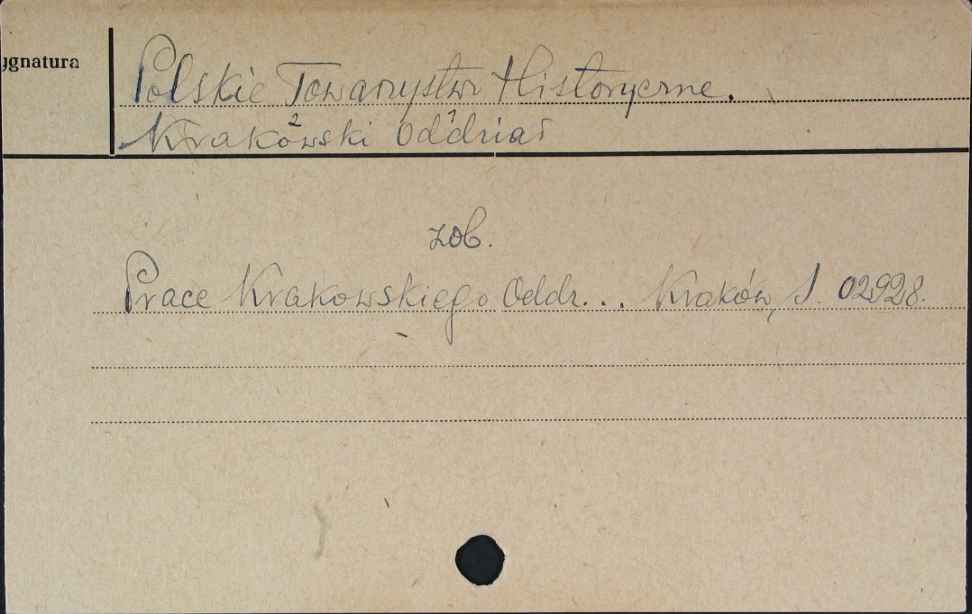 ygnatura
Polskie Towarzystw Historyczne.
Krakowski Oddział
zob.
Prace Krakowskiego Oddz... Kraków, S. 02928.